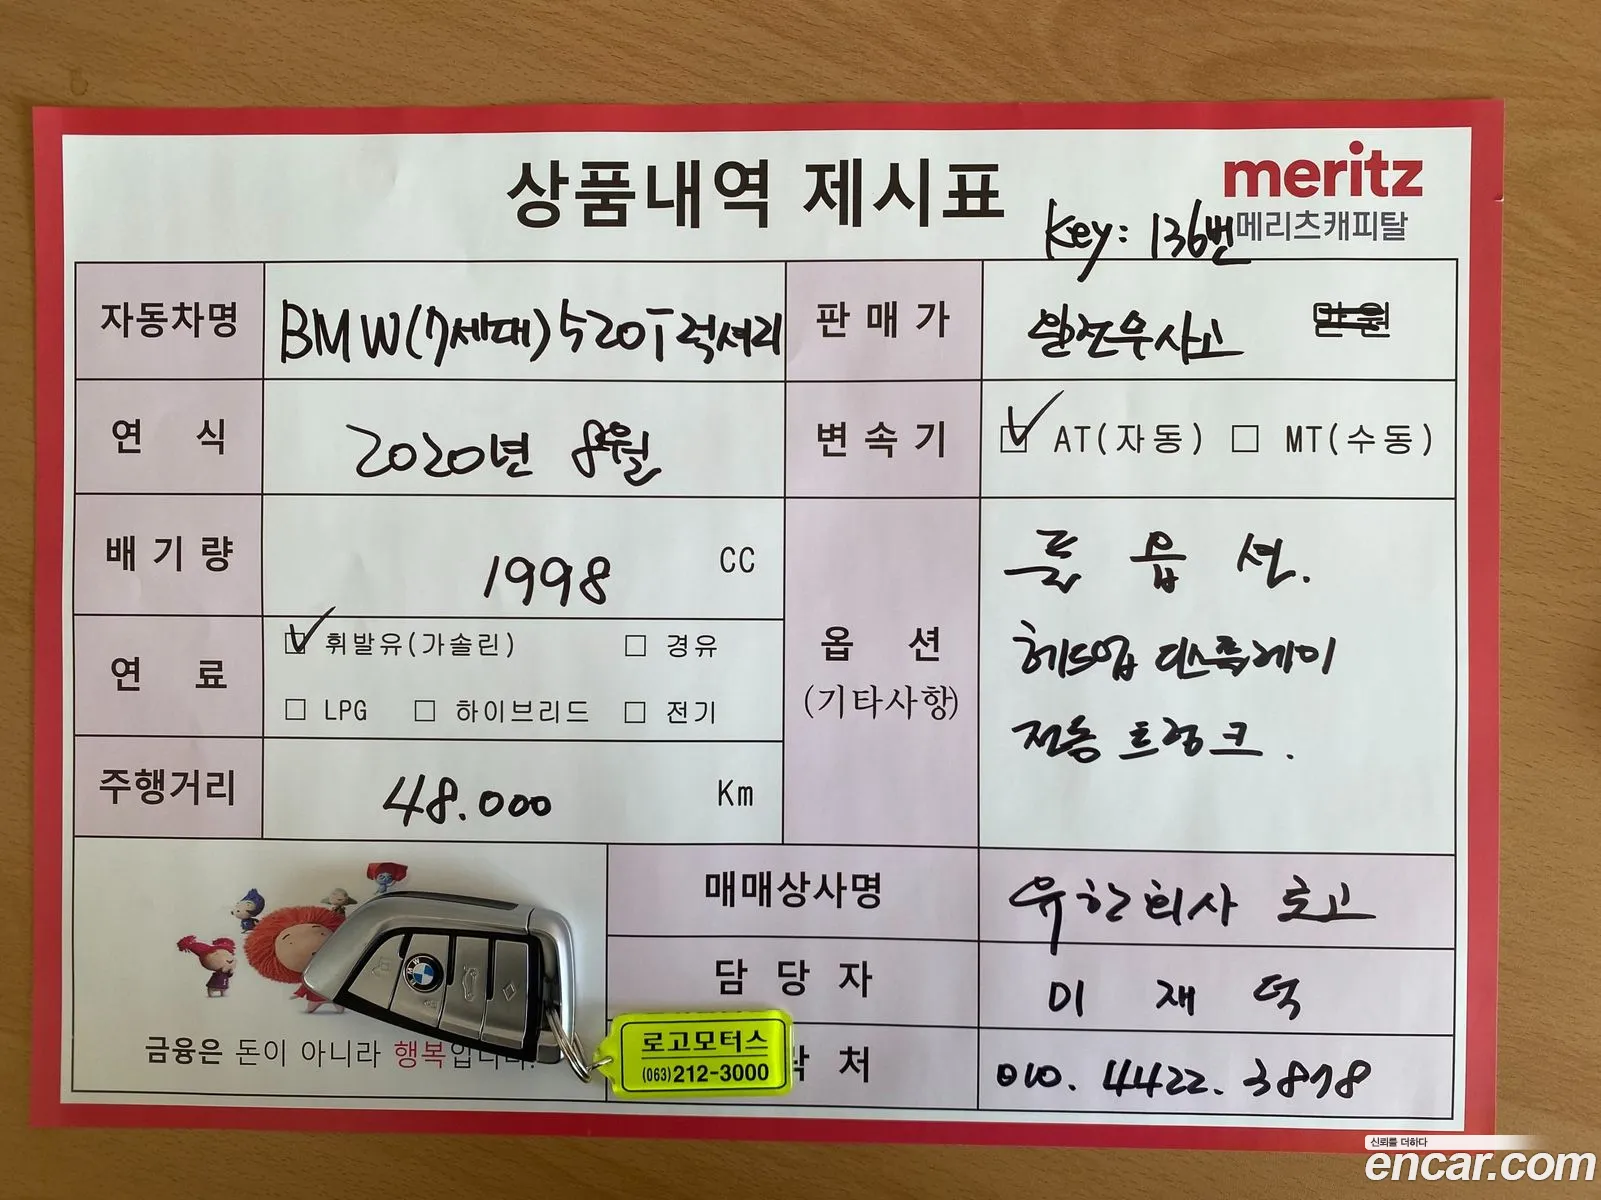 상품내역 제시표
meritz
메리츠캐피탈
Key: 136번
자동차명 BMW(7세대) 520i 럭셔리 판매가 완전무사고 만원
연식 2020년 8월 변속기 AT(자동) MT(수동)
배기량 1998 CC
연료 휘발유(가솔린) 경유
LPG 하이브리드 전기
주행거리 48.000 Km
옵션
(기타사항)
풀 옵 션.
헤드업 디스플레이
전동 트렁크.
매매상사명 유한회사 로고
담당자 이 재 덕
락처 010. 4422. 3878
금융은 돈이 아니라 행복입니다.
로고모터스
(063)212-3000
신뢰를 더하다
encar.com